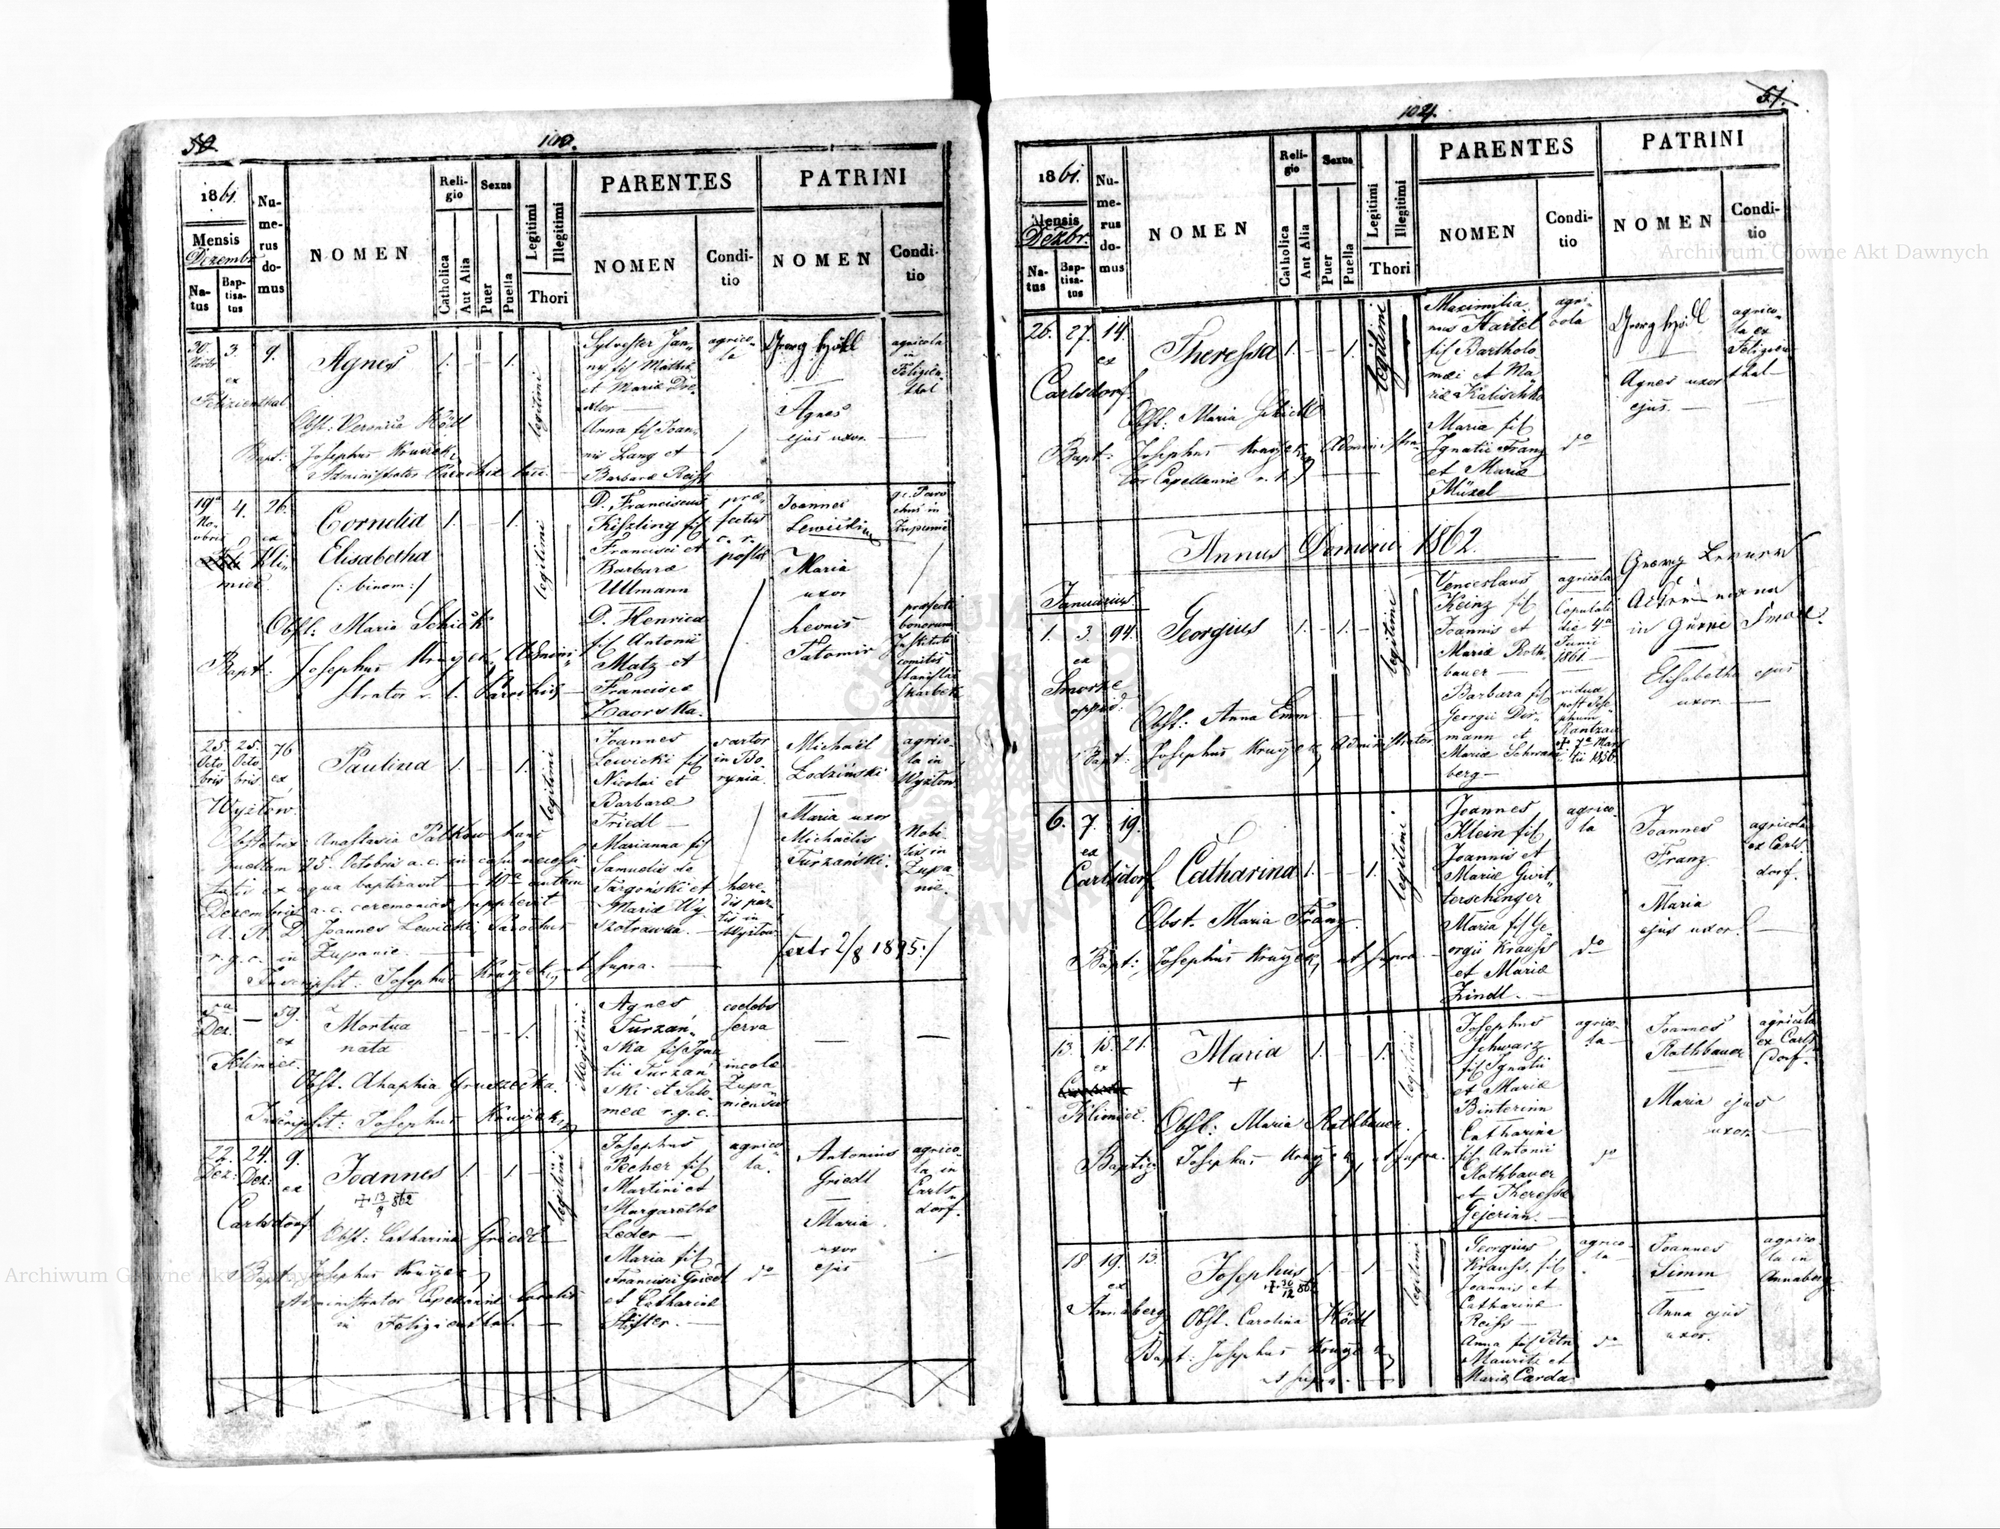 50
100.
1861.
Mensis
Dezembr
Natus
Baptisatus
Numerus domus
NOMEN
Religio
Catholica
Aut Alia
Sexus
Puer
Puella
Legitimi
Illegitimi
Thori
PARENTES
NOMEN
Conditio
PATRINI
NOMEN
Conditio
30. 3. 9.
ex
Felizienthal
Agnes 1. - - 1.
legitimi
Obst: Veronica Hödl
Bapt: Josephus Kruszek
Administrator
Sylvester Jan-
ny fil Mathiæ
et Mariæ
Anna fil Joan-
nis Lang et
Barbaræ Reissl
agrico-
la
Georg
Agnes
ejus uxor
agricola
in
Felizien
thal
19a 4. 26.
No-
vbris ex
Klimiec
Cornelia 1. - - 1.
Elisabetha
(: binom:)
legitimi
Obst: Maria Schick
Bapt: Josephus Kruszek, Admini-
strator
D. Franciscus
Kiszling fil
Francisci et
Barbaræ
Ullmann
D. Henrica
fil Antonii
Matz et
Franciscæ
Zaorska.
præ-
fectus
c. r.
postæ
Joannes
Lewicki
Maria
uxor
Leonis
Tatomir
g. c. Paro
chus in
Zupanie
præfecti
bonorum
Instituti
comitis
Stanislai
Skarbek
25. 25. 76
Octo- Octo-
bris bris ex
Wyzłow
Paulina 1. - - 1.
legitimi
Obstetrix: Anastasia
puellam 25. Octobris a. c. in casu necessi-
tatis ex aqua baptizavit - 10a autem
Dezembris a. c. ceremonias supplevit
A. R. D. Joannes Lewicki, Parochus
r. g. c. in Zupanie.
Inscripsit: Josephus Kruszek, ut supra.
Joannes
Lewicki fil
Nicolai et
Barbaræ
Friedl
Marianna fil
Samuelis de
Targoński et
Mariæ Wy-
szotrawka.
sartor
in Bo-
rynia
hære-
dis par-
tis in
Wyzłow
Michaël
Łodziński
Maria uxor
Michaëlis
Turzański.
agrico-
la in
Wyzłow
Nobi-
lis in
Zupa-
nie.
/extr 2/8 1895./
5ta — 59.
Dez. ex
Klimiec.
Mortua
nata
- - - 1.
illegitimi
Obst. Ahaphia Gruszecka.
Inscripsit: Josephus Kruszek,
Agnes
Turzań-
ska fil Igna-
tii Turzań-
ski et Salo-
meæ r. g. c.
coelebs
serva
incolæ
Zupa-
niensis
22. 24. 9.
Dez: Dez: ex
Carlsdorf
Joannes 1. - 1. -
+ 13/9 862
legitimi
Obst: Catharina Griedl
Bapt: Josephus Kruszek
Administrator Capellaniæ localis
in Felizienthal.
Josephus
Pecher fil
Martini et
Margarethæ
Leder
Maria fil
Francisci Griedl
et Catharinæ
Stifter.
agrico-
la.
do
Antonius
Griedl
Maria
uxor
ejus
agrico-
la in
Carls-
dorf.
51.
101.
1861.
Mensis
Dezbr.
Natus
Baptisatus
Numerus domus
NOMEN
Religio
Catholica
Aut Alia
Sexus
Puer
Puella
Legitimi
Illegitimi
Thori
PARENTES
NOMEN
Conditio
PATRINI
NOMEN
Conditio
26. 27. 14.
ex
Carlsdorf
Theressa 1. - - 1.
legitimi
Obst: Maria Schick
Bapt: Josephus Kruszek, Administra-
tor Capellaniæ
Maximilia
nus Hartel
fil Bartholo
mæi et Ma-
riæ Kalischko
Maria fil
Ignatii Franz
et Mariæ
Müzel
agri-
cola
do
Georg
Agnes uxor
ejus.
agrico-
la ex
Felizien
thal
Annus Domini 1862.
Januarius
1. 3. 94.
ex
Smorze
oppid:
Georgius 1. - 1. -
legitimi
Obst: Anna Emm
Bapt: Josephus Kruszek, Administrator
Venceslaus
Keinz fil
Joannis et
Mariæ Roth-
bauer
Barbara fil
Georgii Dor-
mann et
Mariæ Schwarz
berg
agricola
Copulati
die 4a
Junii
1861.
vidua
post Jose-
phum
Rantzau
+ 7a Mar-
tii 1856.
Georg
in
Elisabetha ejus
uxor
6. 7. 19.
ex
Carlsdorf
Catharina 1. - - 1.
legitimi
Obst. Maria Franz.
Bapt: Josephus Kruszek, ut supra
Joannes
Klein fil
Joannis et
Mariæ Gwit-
terschinger
Maria fil Ge-
orgii Kraussl
et Mariæ
Zindl.
agrico-
la
do
Joannes
Franz.
Maria
ejus uxor.
agricola
ex Carls
dorf.
13. 15. 21.
ex
Klimiec.
Maria 1. - - 1.
+
legitimi
Obst: Maria Rothbauer.
Baptiz Josephus Kruszek, ut supra.
Josephus
Schwarz
fil Ignatii
et Mariæ
Binterinn
Catharina
fil Antonii
Rothbauer
et Theressæ
Gejerinn.
agrico-
la
do
Joannes
Rothbauer
Maria ejus
uxor.
agricola
ex Carls
dorf.
18 19. 13.
ex
Annaberg
Josephus 1. - 1. -
legitimi
Obst. Carolina Hödl
Bapt: Josephus Kruszek
ut supra.
Georgius
Krauss, fil
Joannis et
Catharinæ
Reiss
Anna fil Petri
Mauritz et
Mariæ Carda.
agrico-
la
do
Joannes
Simm
Anna ejus
uxor.
agrico-
la in
Annaberg
Archiwum Główne Akt Dawnych
Archiwum Główne Akt Dawnych